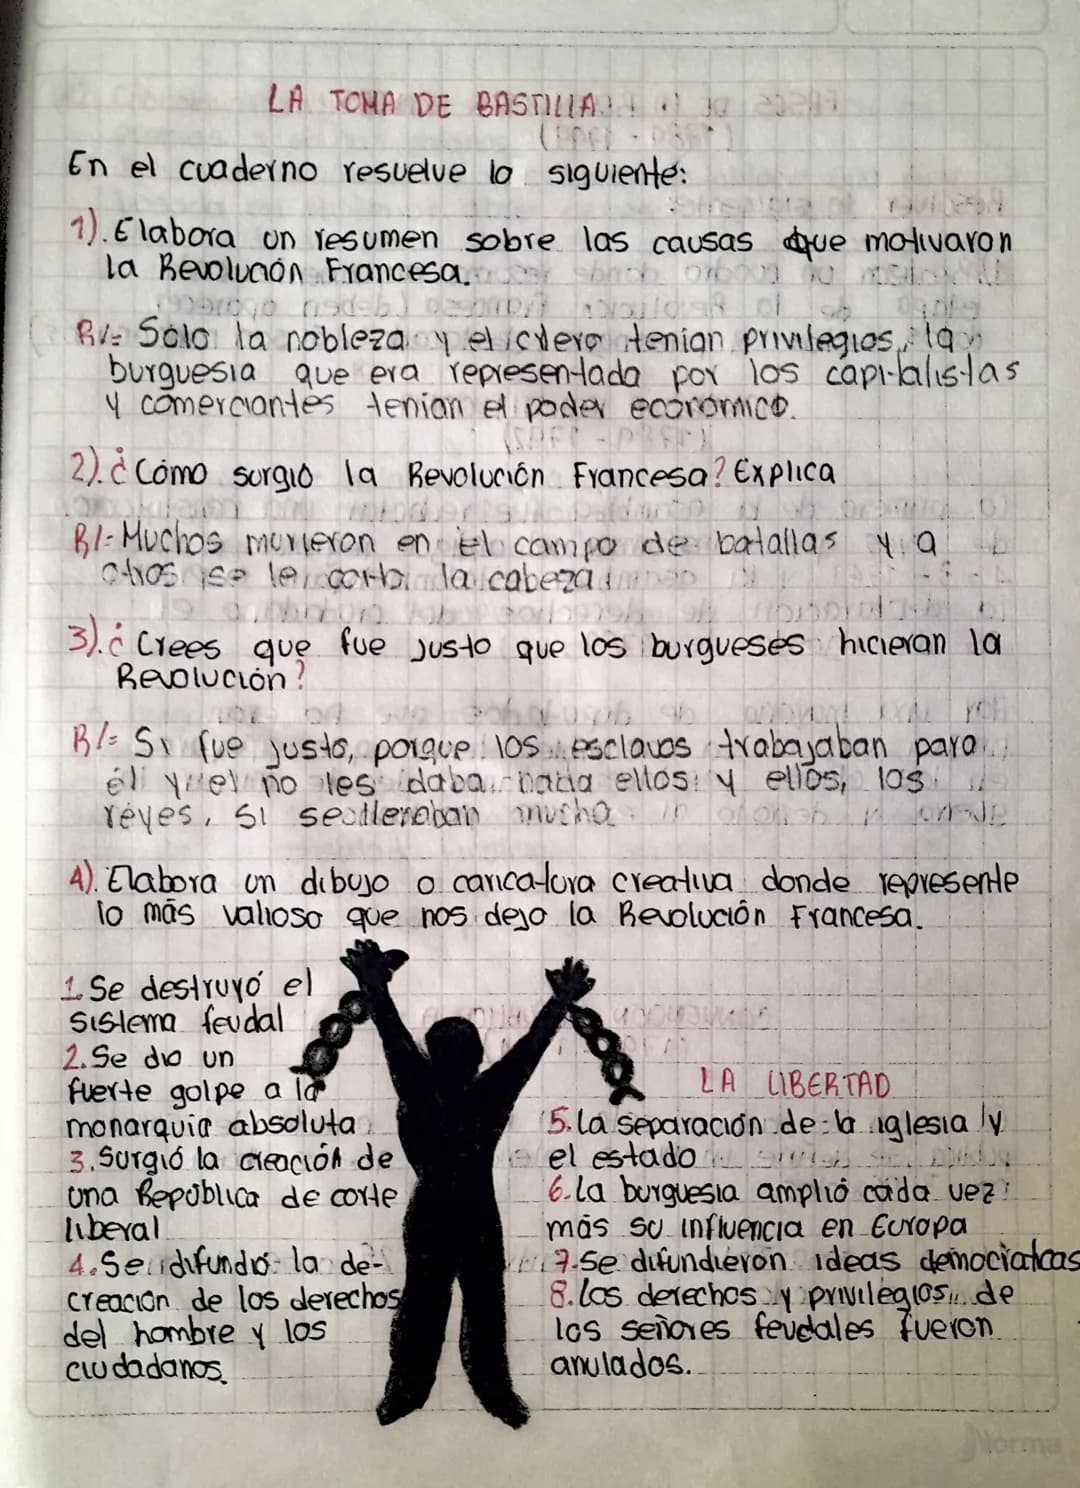 LA TOMA DE BASTILLA.
En el cuaderno resuelve lo siguiente:
1). Elabora un resumen sobre las causas que motivaron
la Revolución Francesa.
R/= Solo la nobleza y el clero tenian privilegios, la
burguesia que era representada por los capitalistas
y comerciantes tenian el poder económico.
2). ¿Cómo surgió la Revolución Francesa? Explica
R/= Muchos murieron en el campo de batallas y a
otros se le corto la cabeza
3). ¿Crees que fue justo que los burgueses hicieran la
Revolución?
R/= Si fue justo, porque los esclavos trabajaban para
él y el no les daba nada ellos y ellos, los
reyes, si se lleraban mucho
4). Elabora un dibujo o caricatura creativa donde represente
lo más valioso que nos dejo la Revolución Francesa.
1. Se destruyó el
sistema feudal
2. Se dio un
fuerte golpe a la
monarquia absoluta
3. Surgió la creación de
una República de corte
liberal
4. Se difundió la de-
creación de los derechos
del hombre y los
ciudadanos.
LA LIBERTAD
5. La separación de la iglesia y
el estado
6. La burguesia amplió cada vez
más su influencia en Europa
7. Se difundieron ideas democraticas
8. Los derechos y privilegios de
los señores feudales fueron
anulados.
Norma